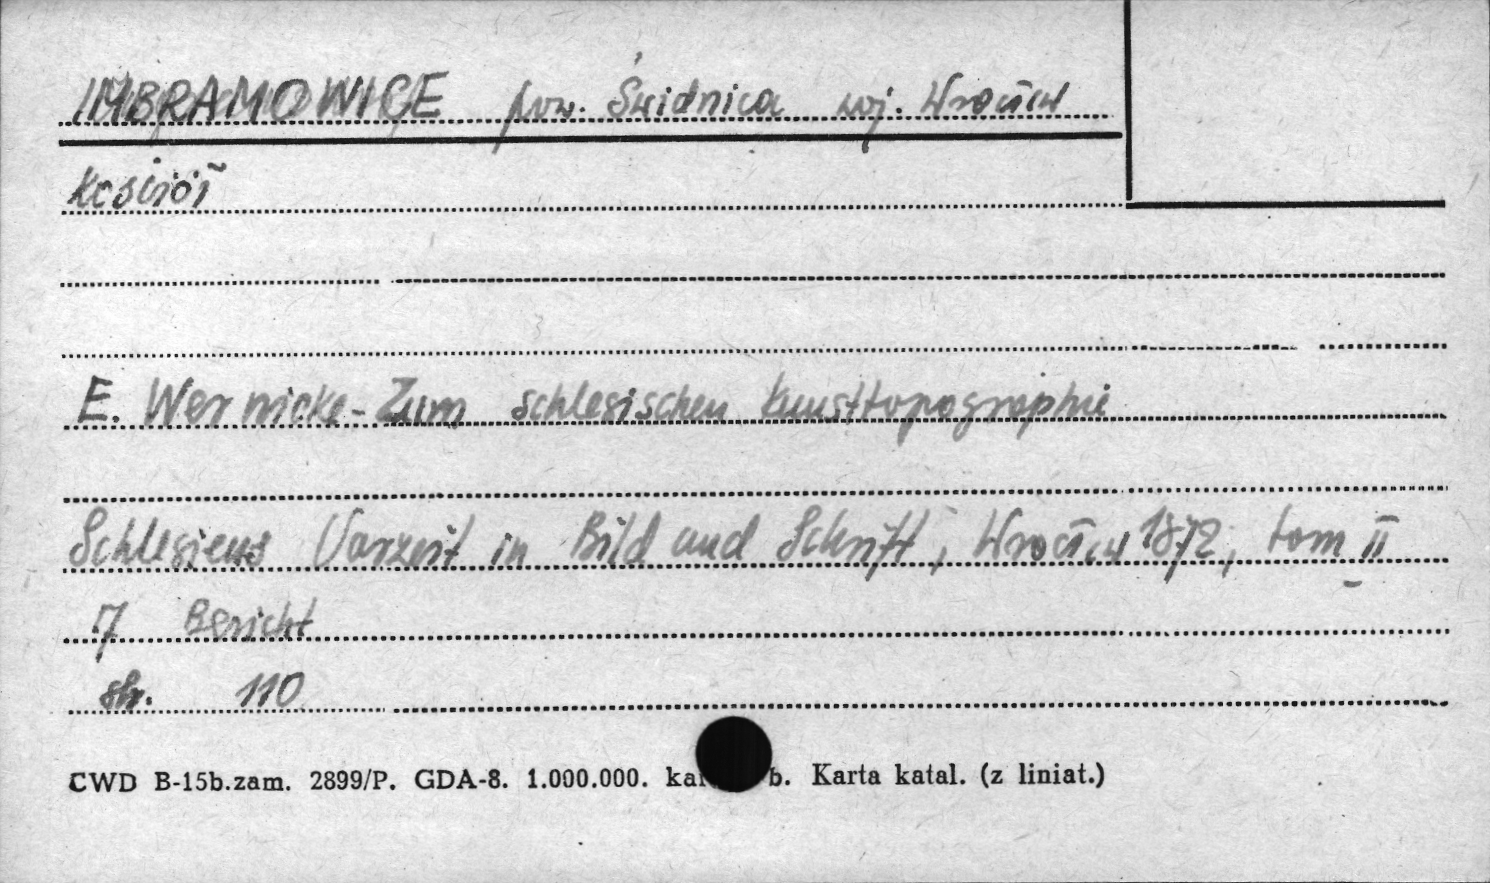 IMBRAMOWICE pow. Świdnica woj. Wrocław
Kościół
E. Wernicke - Zum schlesischen Kunsttopographie
Schlesiens Vorzeit in Bild und Schrift, Wrocław 1872, tom II
7 Bericht
str. 110
CWD B-15b.zam. 2899/P. GDA-8. 1.000.000. b. Karta katal. (z liniat.)